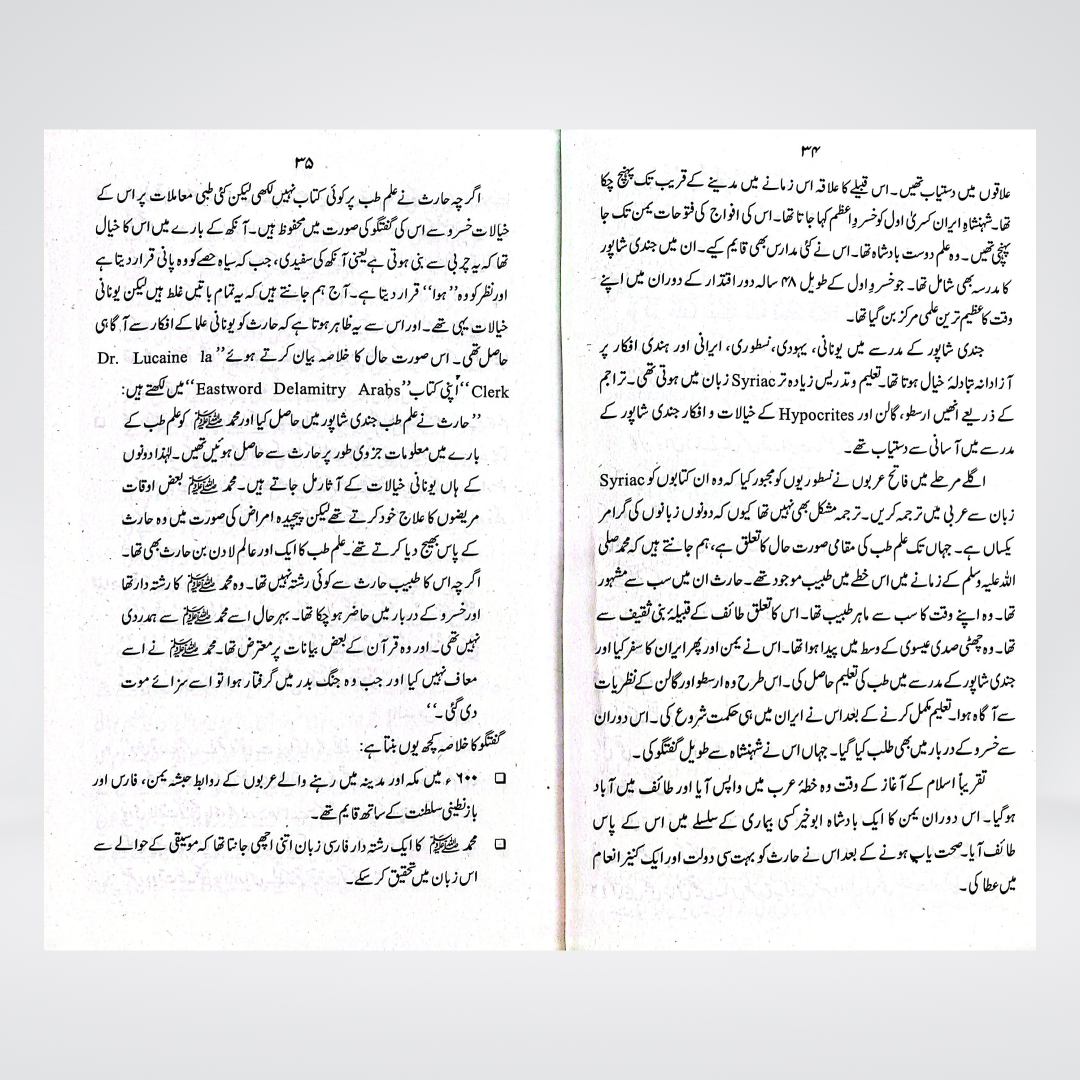 ۳۴
علاقوں میں دستیاب تھیں۔ اس قبیلے کا علاقہ اس زمانے میں مدینے کے قریب تک پہنچ چکا
تھا۔ شہنشاہِ ایران کسریٰ اول کو خسروِ اعظم کہا جاتا تھا۔ اس کی افواج کی فتوحات یمن تک جا
پہنچی تھیں۔ وہ علم دوست بادشاہ تھا۔ اس نے کئی مدارس بھی قایم کیے۔ ان میں جندی شاپور
کا مدرسہ بھی شامل تھا۔ جو خسرو اول کے طویل ۴۸ سالہ دور اقتدار کے دوران میں اپنے
وقت کا عظیم ترین علمی مرکز بن گیا تھا۔
جندی شاپور کے مدرسے میں یونانی، یہودی، نسطوری، ایرانی اور ہندی افکار پر
آزادانہ تبادلۂ خیال ہوتا تھا۔ تعلیم و تدریس زیادہ تر Syriac زبان میں ہوتی تھی۔ تراجم
کے ذریعے انھیں ارسطو، گالن اور Hypocrites کے خیالات و افکار جندی شاپور کے
مدرسے میں آسانی سے دستیاب تھے۔
اگلے مرحلے میں فاتح عربوں نے نسطوریوں کو مجبور کیا کہ وہ ان کتابوں کو Syriac
زبان سے عربی میں ترجمہ کریں۔ ترجمہ مشکل بھی نہیں تھا کیوں کہ دونوں زبانوں کی گرامر
یکساں ہے۔ جہاں تک علم طب کی مقامی صورت حال کا تعلق ہے، ہم جانتے ہیں کہ محمد صلی
اللہ علیہ وسلم کے زمانے میں اس خطے میں طبیب موجود تھے۔ حارث ان میں سب سے مشہور
تھا۔ وہ اپنے وقت کا سب سے ماہر طبیب تھا۔ اس کا تعلق طائف کے قبیلۂ بنی ثقیف سے
تھا۔ وہ چھٹی صدی عیسوی کے وسط میں پیدا ہوا تھا۔ اس نے یمن اور پھر ایران کا سفر کیا اور
جندی شاپور کے مدرسے میں طب کی تعلیم حاصل کی۔ اس طرح وہ ارسطو اور گالن کے نظریات
سے آگاہ ہوا۔ تعلیم مکمل کرنے کے بعد اس نے ایران میں ہی حکمت شروع کی۔ اس دوران
سے خسرو کے دربار میں بھی طلب کیا گیا۔ جہاں اس نے شہنشاہ سے طویل گفتگو کی۔
تقریباً اسلام کے آغاز کے وقت وہ خطۂ عرب میں واپس آیا اور طائف میں آباد
ہو گیا۔ اس دوران یمن کا ایک بادشاہ ابوخیر کسی بیماری کے سلسلے میں اس کے پاس
طائف آیا۔ صحت یاب ہونے کے بعد اس نے حارث کو بہت سی دولت اور ایک کنیز انعام
میں عطا کی۔
۳۵
اگرچہ حارث نے علم طب پر کوئی کتاب نہیں لکھی لیکن کئی طبی معاملات پر اس کے
خیالات خسرو سے اس کی گفتگو کی صورت میں محفوظ ہیں۔ آنکھ کے بارے میں اس کا خیال
تھا کہ یہ چربی سے بنی ہوتی ہے یعنی آنکھ کی سفیدی، جب کہ سیاہ حصے کو وہ پانی قرار دیتا ہے
اور نظر کو وہ ”ہوا“ قرار دیتا ہے۔ آج ہم جانتے ہیں کہ یہ تمام باتیں غلط ہیں لیکن یونانی
خیالات یہی تھے۔ اور اس سے یہ ظاہر ہوتا ہے کہ حارث کو یونانی علما کے افکار سے آگاہی
حاصل تھی۔ اس صورت حال کا خلاصہ بیان کرتے ہوئے ”Dr. Lucaine la
Clerk“ اپنی کتاب ”Eastword Delamitry Arabs“ میں لکھتے ہیں:
”حارث نے علم طب جندی شاپور میں حاصل کیا اور محمد ﷺ کو علم طب کے
بارے میں معلومات جزوی طور پر حارث سے حاصل ہوئیں تھیں۔ لہٰذا دونوں
کے ہاں یونانی خیالات کے آثار مل جاتے ہیں۔ محمد ﷺ بعض اوقات
مریضوں کا علاج خود کرتے تھے لیکن پیچیدہ امراض کی صورت میں وہ حارث
کے پاس بھیج دیا کرتے تھے۔ علم طب کا ایک اور عالم لادن بن حارث بھی تھا۔
اگرچہ اس کا طبیب حارث سے کوئی رشتہ نہیں تھا۔ وہ محمد ﷺ کا رشتہ دار تھا
اور خسرو کے دربار میں حاضر ہو چکا تھا۔ بہرحال اسے محمد ﷺ سے ہمدردی
نہیں تھی۔ اور وہ قرآن کے بعض بیانات پر معترض تھا۔ محمد ﷺ نے اسے
معاف نہیں کیا اور جب وہ جنگ بدر میں گرفتار ہوا تو اسے سزائے موت
دی گئی۔“
گفتگو کا خلاصہ کچھ یوں بنتا ہے:
❑ ۶۰۰ء میں مکہ اور مدینہ میں رہنے والے عربوں کے روابط حبشہ یمن، فارس اور
بازنطینی سلطنت کے ساتھ قایم تھے۔
❑ محمد ﷺ کا ایک رشتہ دار فارسی زبان اتنی اچھی جانتا تھا کہ موسیقی کے حوالے سے
اس زبان میں تحقیق کر سکے۔